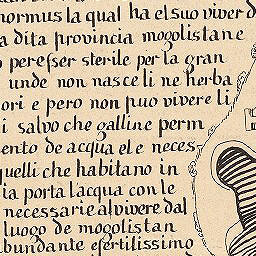 normus la qual ha el suo viver d
a dita provincia mogolistane
o peresser sterile per la gran
unde non nasce li ne herba
ori e pero non puo vivere li
i salvo che galline perm
ento de acqua el e neces
quelli che habitano in
la porta lacqua con le
necessarie al vivere dal
luogo de mogolistan
bundante e fertilissimo